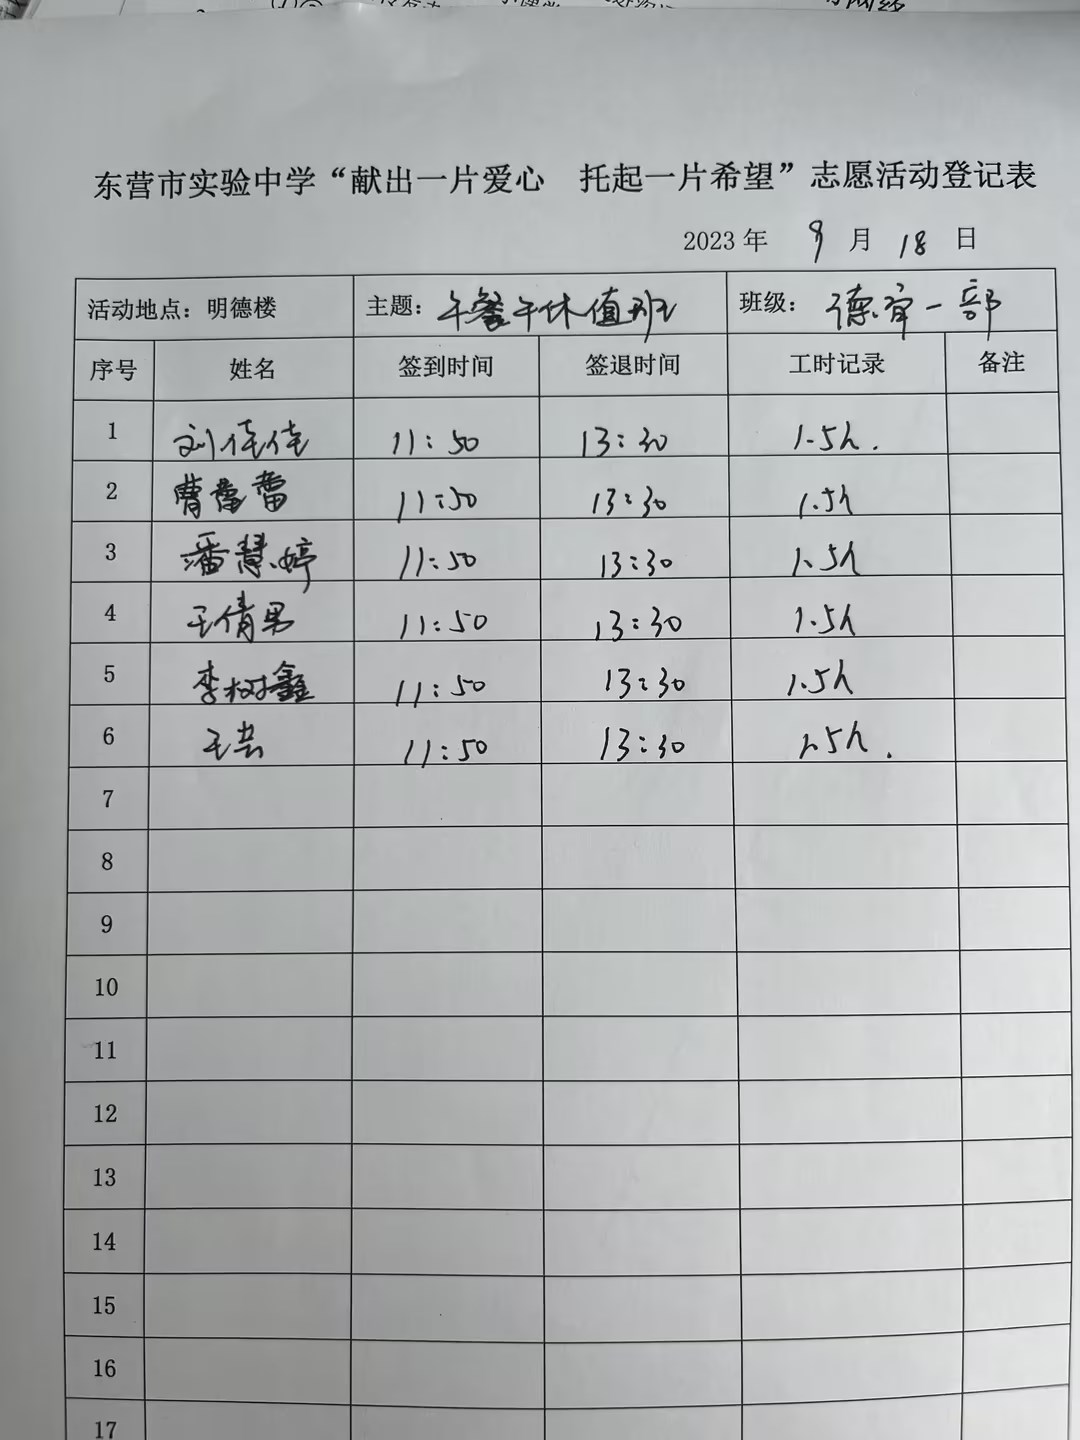 东营市实验中学“献出一片爱心 托起一片希望”志愿活动登记表
2023 年 9 月 18 日
活动地点：明德楼 主题：午餐午休值班 班级：德育一部
序号 姓名 签到时间 签退时间 工时记录 备注
1 刘佳佳 11:50 13:30 1.5h.
2 曹蕾蕾 11:50 13:30 1.5h
3 潘慧婷 11:50 13:30 1.5h
4 王倩男 11:50 13:30 1.5h
5 李树鑫 11:50 13:30 1.5h
6 王芸 11:50 13:30 1.5h.
7
8
9
10
11
12
13
14
15
16
17